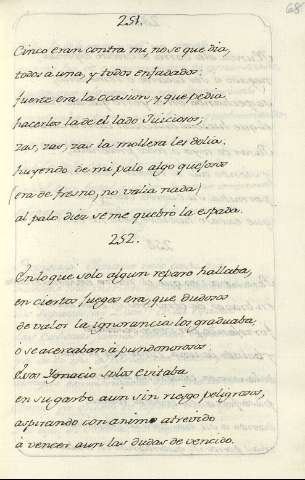 68
251.
Cinco eran contra mi, no se que dia,
todos á una, y todos enfadados:
fuerte era la ocasion, y que pedia
hacerlos la de el lado Juiciosos;
zas, zas, zas la mollera les dolia,
huyendo de mi palo algo quejosos
(era de fresno, no valia nada)
al palo diez se me quebró la espada.
252.
En lo que solo algun reparo hallaba,
en ciertos fuegos era, que dudosos
de valor la ignorancia los graduaba,
ó se acercaban á pundonorosos
Esos Ygnacio solos evitaba
en su garbo aun sin riesgo peligrosos,
aspirando con animo atrevido
á vencer aun las dudas de vencido.